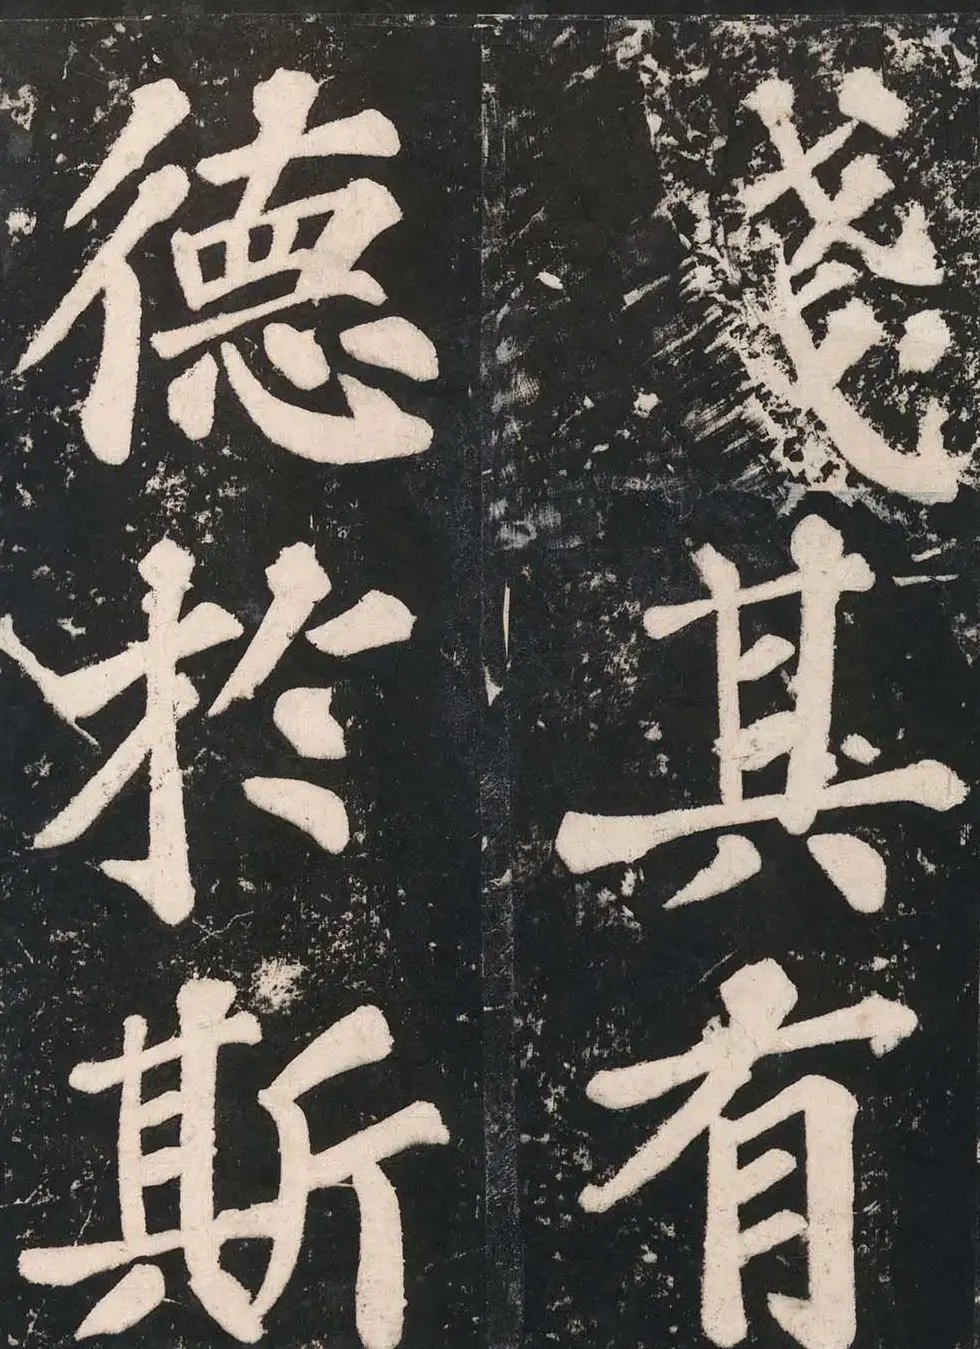 其有
德於斯